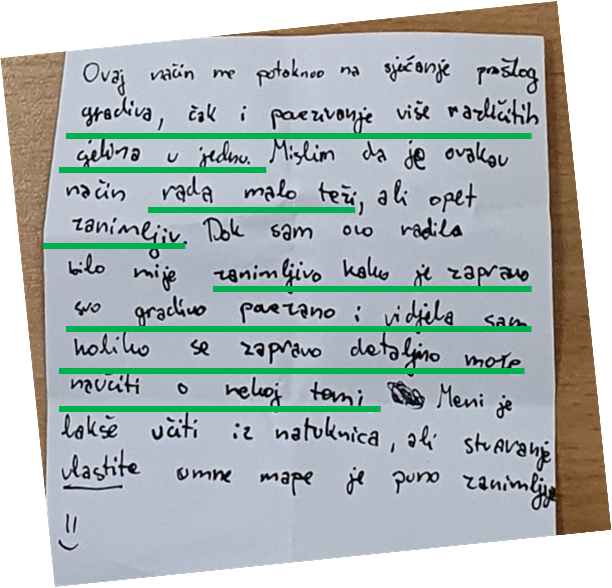 Ovaj način me potaknuo na sjećanje prošlog
gradiva, čak i povezivanje više različitih
cjelina u jednu. Mislim da je ovakav
način rada malo teži, ali opet
zanimljiv. Dok sam ovo radila
bilo mi je zanimljivo kako je zapravo
svo gradivo povezano i vidjela sam
koliko se zapravo detaljno može
naučiti o nekoj temi Meni je
lakše učiti iz natuknica, ali stvaranje
vlastite umne mape je puno zanimljije